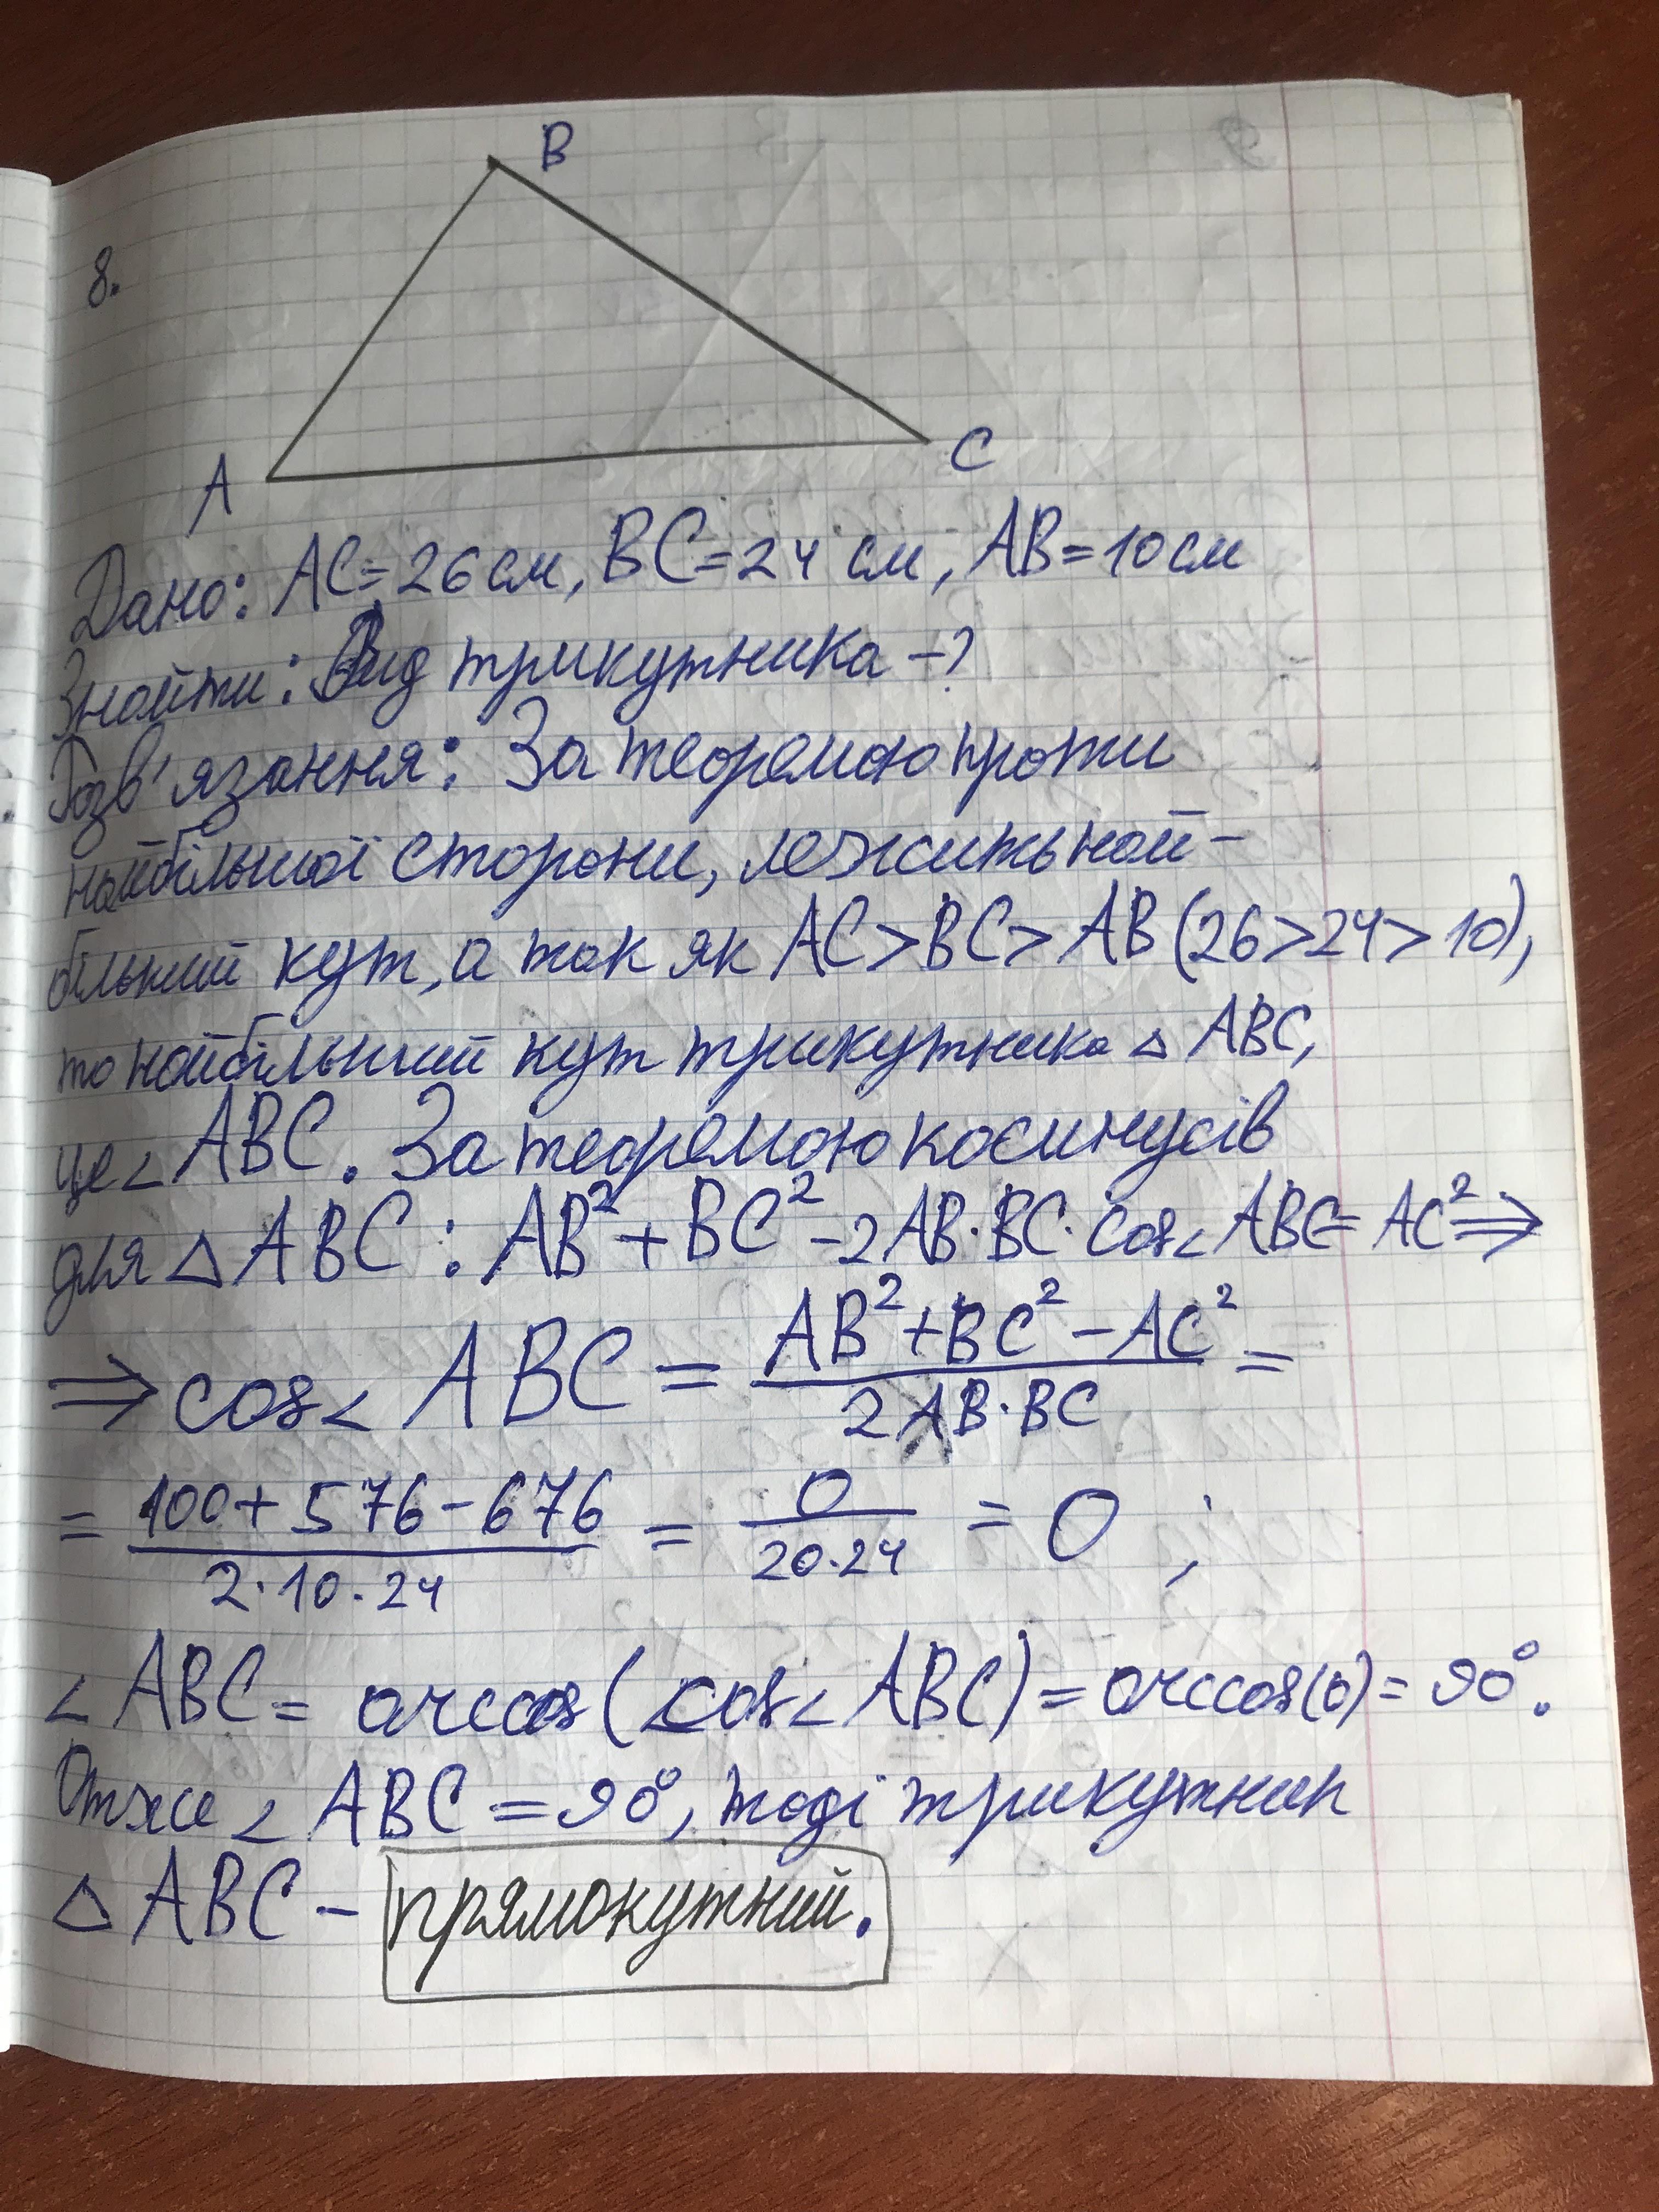 B
8.
A
C
Дано: AC=26см, BC=24 см, AB=10см
Знайти: Вид трикутника -?
Розв'язання: За теоремою проти
найбільшої сторони, лежить най-
більший кут, а так як AC>BC>AB (26>24>10),
то найбільший кут трикутника △ ABC,
це ∠ABC. За теоремою косинусів
для △ABC: AB²+BC²-2AB·BC·cos∠ABC=AC² ⇒
⇒ cos∠ABC = (AB²+BC²-AC²)/(2AB·BC) =
= (100+576-676)/(2·10·24) = 0/(20·24) = 0 ;
∠ABC = arccos(cos∠ABC) = arccos(0) = 90°.
Отже ∠ABC = 90°, тоді трикутник
△ABC - прямокутний.